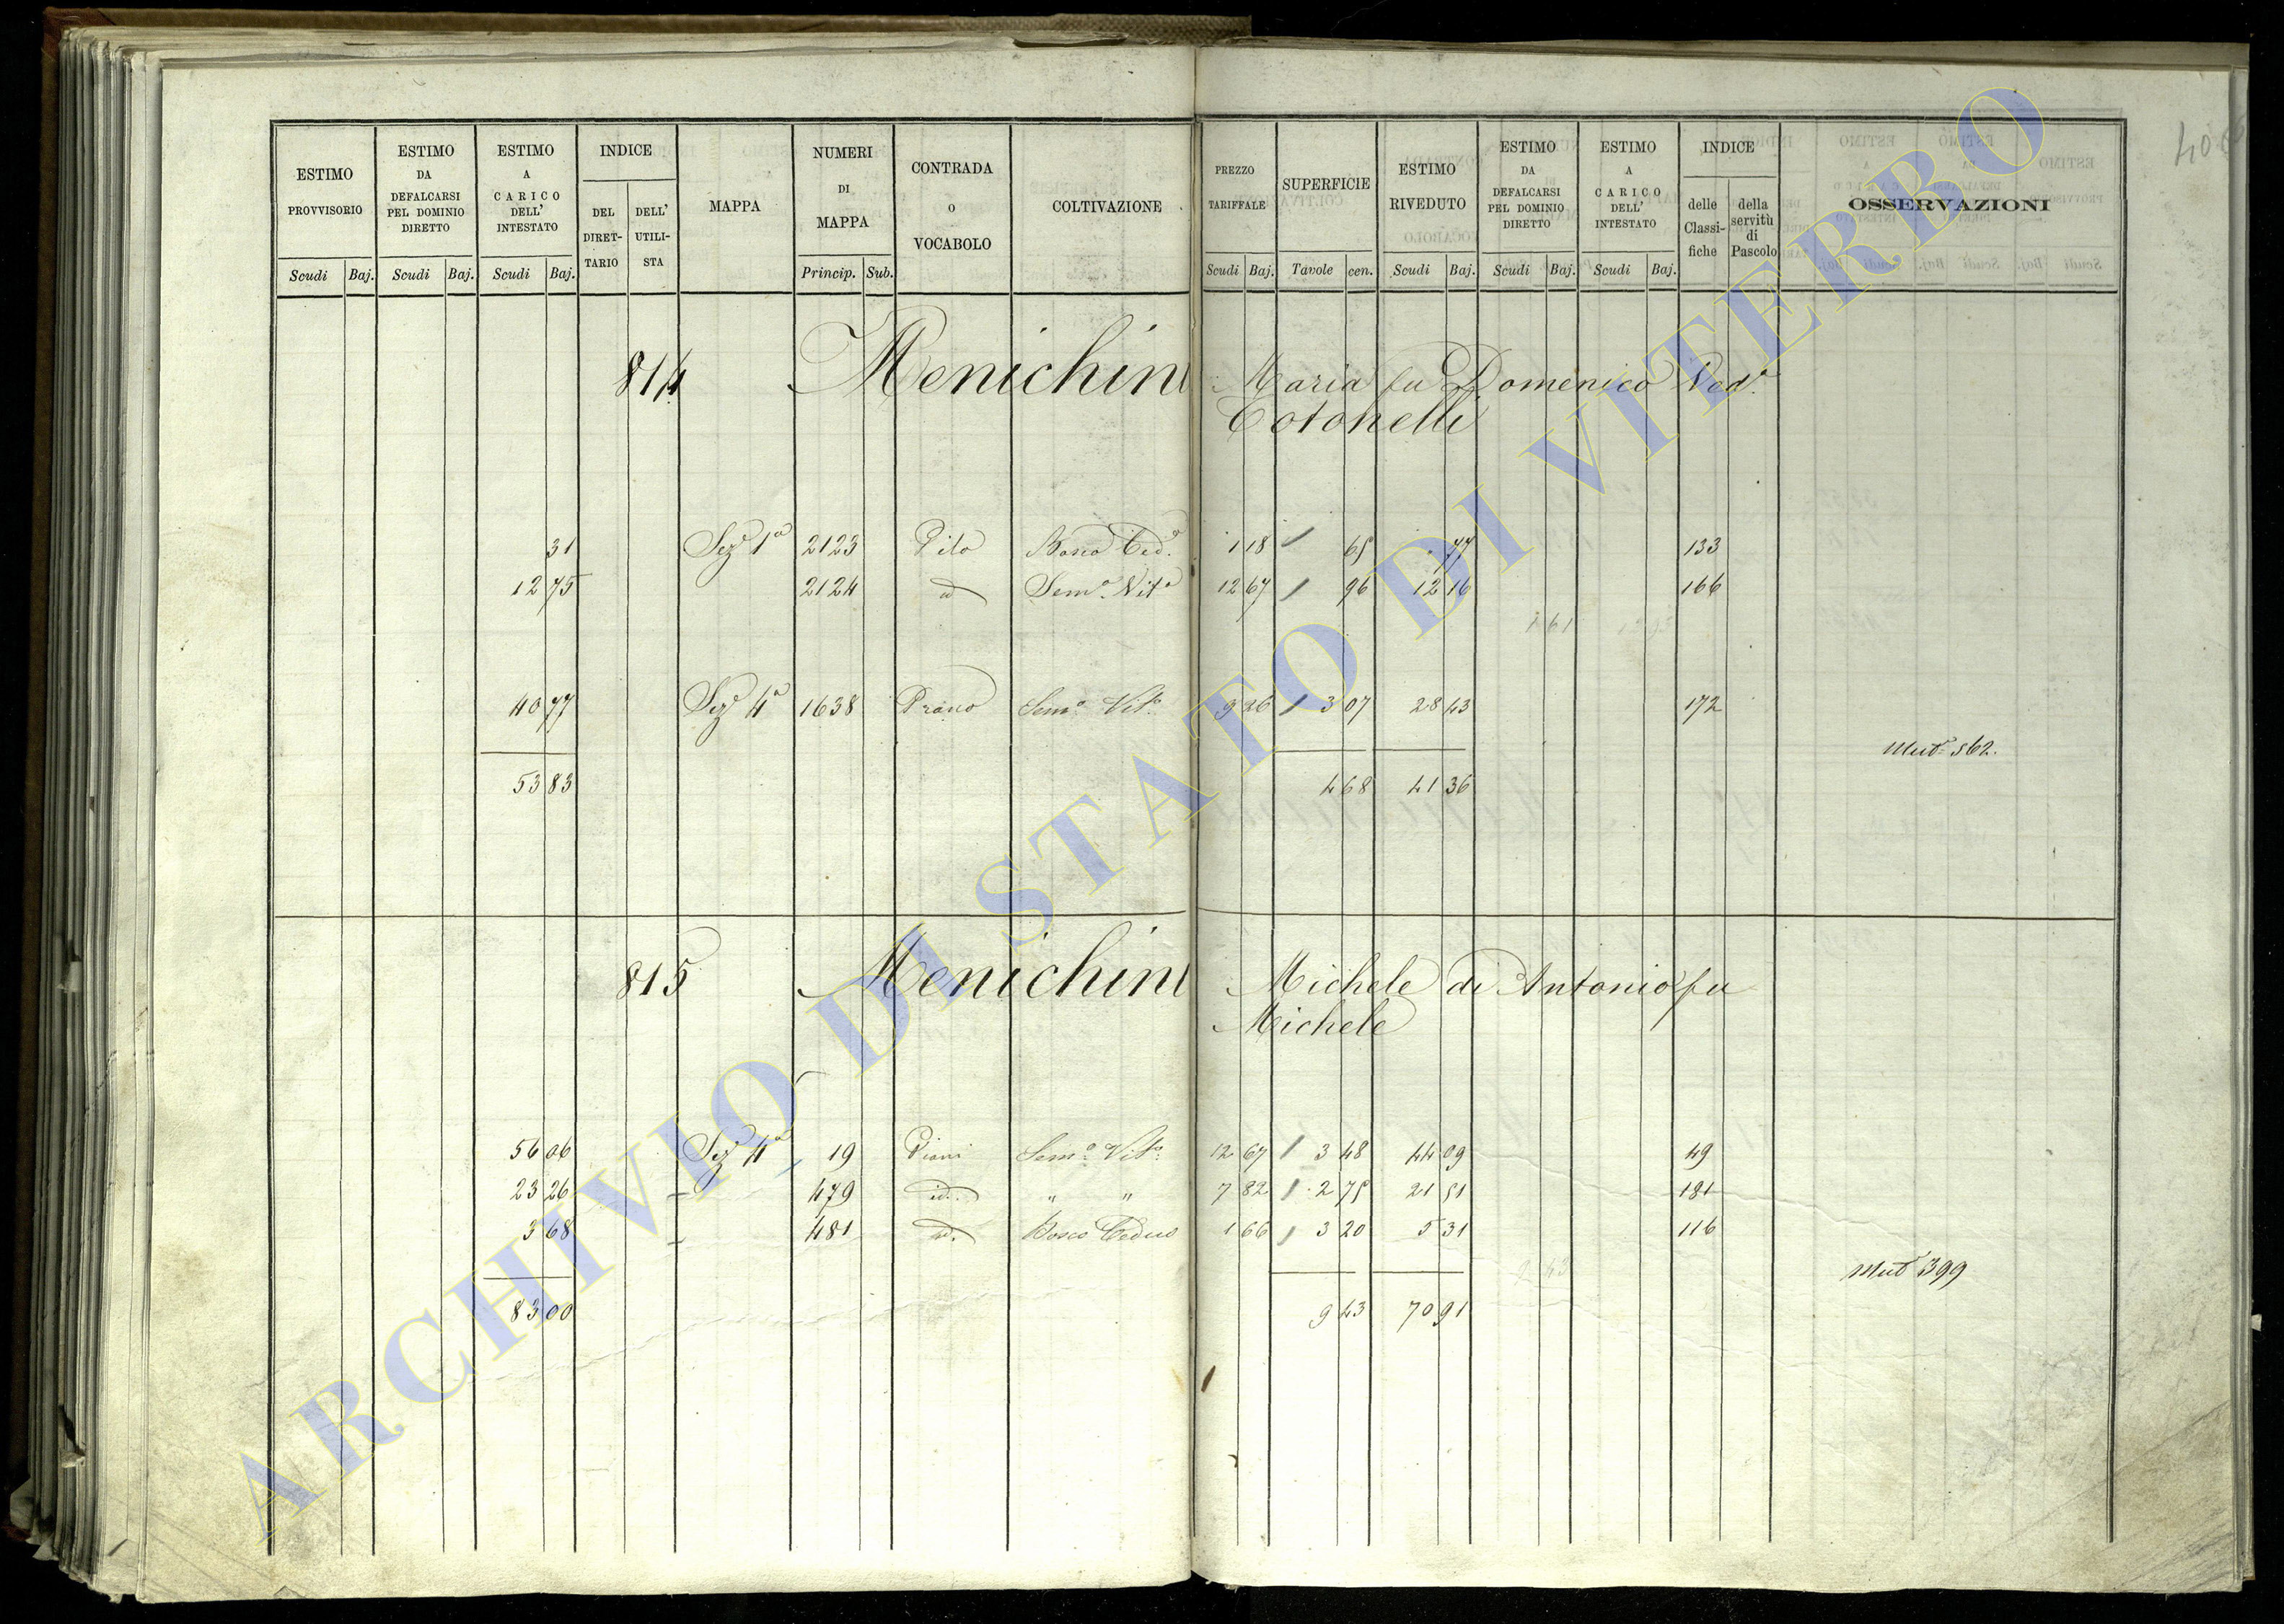 408
ESTIMO PROVVISORIO Scudi Baj.
ESTIMO DA DEFALCARSI PEL DOMINIO DIRETTO Scudi Baj.
ESTIMO A CARICO DELL' INTESTATO Scudi Baj.
INDICE DEL DIRET-TARIO DELL' UTILI-STA
MAPPA
NUMERI DI MAPPA Princip. Sub.
CONTRADA O VOCABOLO
COLTIVAZIONE
PREZZO TARIFFALE Scudi Baj.
SUPERFICIE Tavole cen.
ESTIMO RIVEDUTO Scudi Baj.
ESTIMO DA DEFALCARSI PEL DOMINIO DIRETTO Scudi Baj.
ESTIMO A CARICO DELL' INTESTATO Scudi Baj.
INDICE delle Classi-fiche della servitù di Pascolo
OSSERVAZIONI
814 Menichini Maria fu Domenico Ved.a
Cotonelli
31 Sez.e 1a 2123 Pilo Bosco Ced.o 1 18 65 77 133
12 75 2124 id Sem.o Vit.o 12 67 96 12 16 166
1 61 13 93
40 77 Sez.e 4a 1638 Prano Sem.o Vit.o 9 26 3 07 28 43 172
Mut.e 562.
53 83 4 68 41 36
815 Menichini Michele di Antonio fu
Michele
56 06 Sez.e 4a 19 Piani Sem.o Vit.o 12 67 3 48 44 09 49
23 26 - 479 id. " " 7 82 2 75 21 51 181
3 68 - 481 id. Bosco Ceduo 1 66 3 20 5 31 116
2 43
Mut.e 399
83 00 9 43 70 91
ARCHIVIO DI STATO DI VITERBO